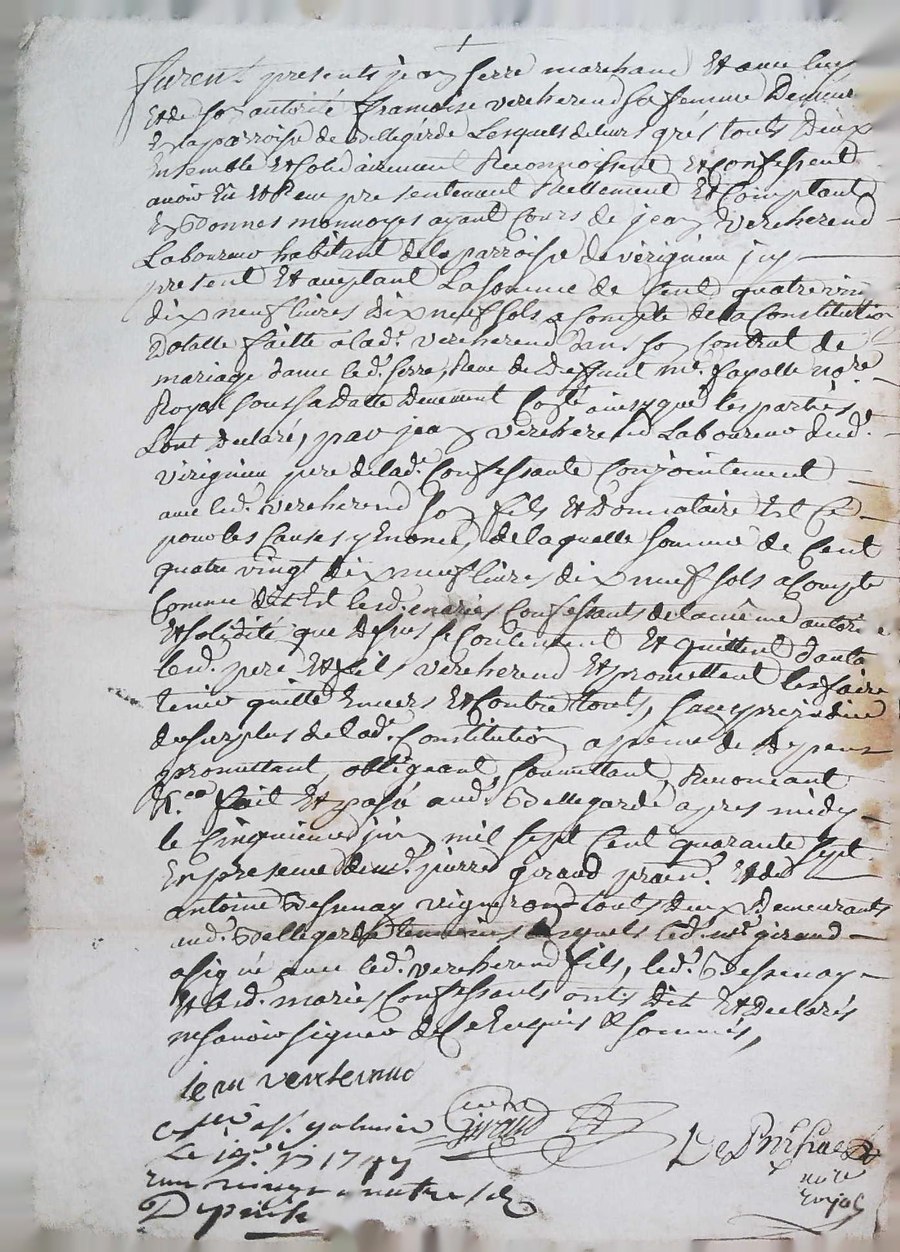 furent presents jean serre marchand Et avec luy
Et de son autorité francoise vercherend sa femme Demeur
En la parroise de Bellegarde Lesquels de leurs grés touts deux
Ensemble Et solidairement Reconnoissent Et Confessent
avoir Eu Et Receu presentement Reellement Et Comptant
En Bonnes monnoyes ayant Cours de jean vercherend
Laboureur habitant de la parroise de verignieu jcy
present Et aceptant La somme de Cent quatre vin
dix neuf livres dix neuf sols a Compte de la Constitution
Dotalle faitte a lad. vercherend dans son Contrat de
mariage d'avec led. serre, Receu de Deffunt me. fayolle no.re
Royal sous sa datte Deuement ainsy que les parties
Lont Declaré, par jean vercherend Laboureur dud.
virignieu pere de lad. Confessante Conjointement
avec led. vercherend son fils Et Donnataire Est Ce
pour les Causes y Enoncé, de laquelle somme de Cent
quatre vingt dix neuf livres dix neuf sols a Compte
Comme dit Est lesd. mariés Confessants de la même autorité
Et solidité que dessus se Contentent Et quittent d'auta
lesd. pere Et fils vercherend Et promettent les faire
tenir quitte Envers Et Contre touts, sans prejudice
du surplus de lad. Constitution a peine de Depens
promettant, obligeant, soumettant, Renonceant
&.ca fait Et passé aud. Bellegarde apres midy
le Cinquieme juin mil sept Cent quarante sept
En presence de me. pierre giraud pratn. Et de
antoine Desnay vigneron touts deux Demeurants
aud. Bellegarde temoins Lesquels led. me. giraud
a signé avec led. vercherend fils, led. Desnay
Et lesd. mariés Confessants onts dit Et Declarés
ne savoir signer de Ce Enquis & sommés,
jean vercherand
giraud
Con.lé a s.t galmier
Le 1747
notre
Depuish
no.re
royal